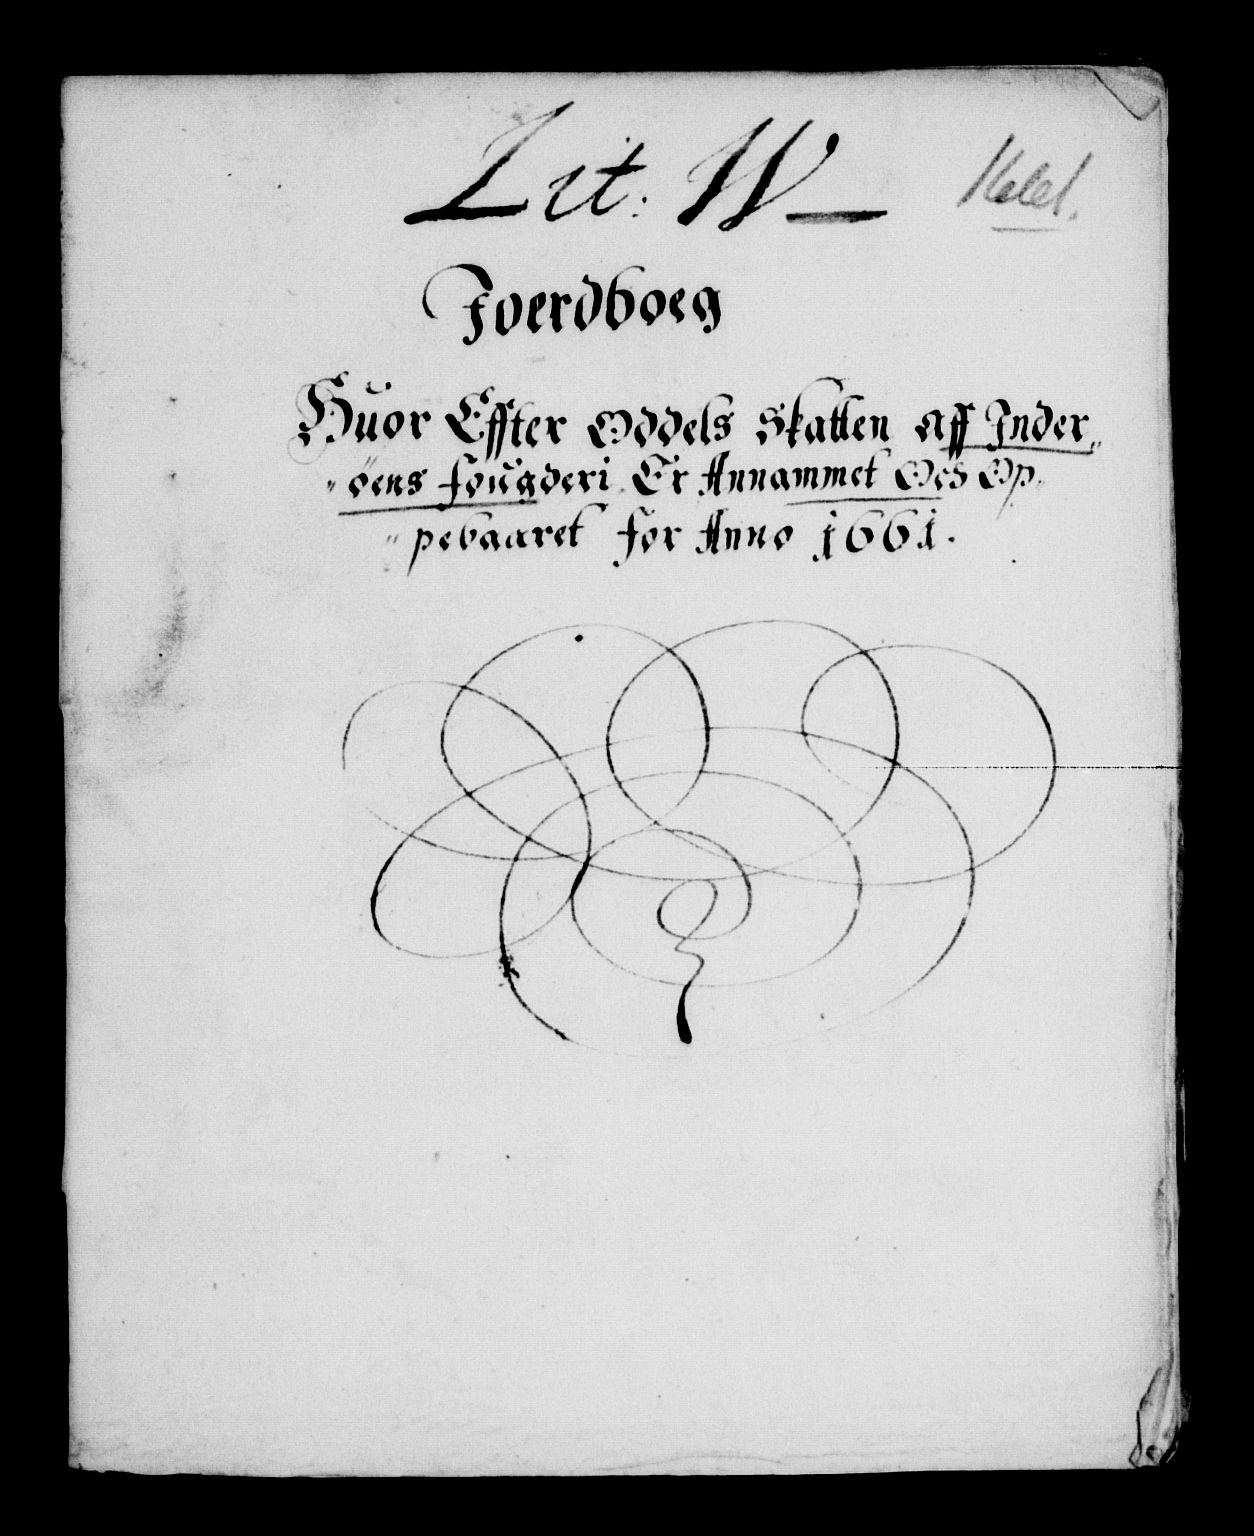 Lit: W
Joerdboeg
Huor Effter Oddels Skatten Aff Inder„
„öens fougderi Er Annammet Och Op„
„pebaaret for Anno 1661.